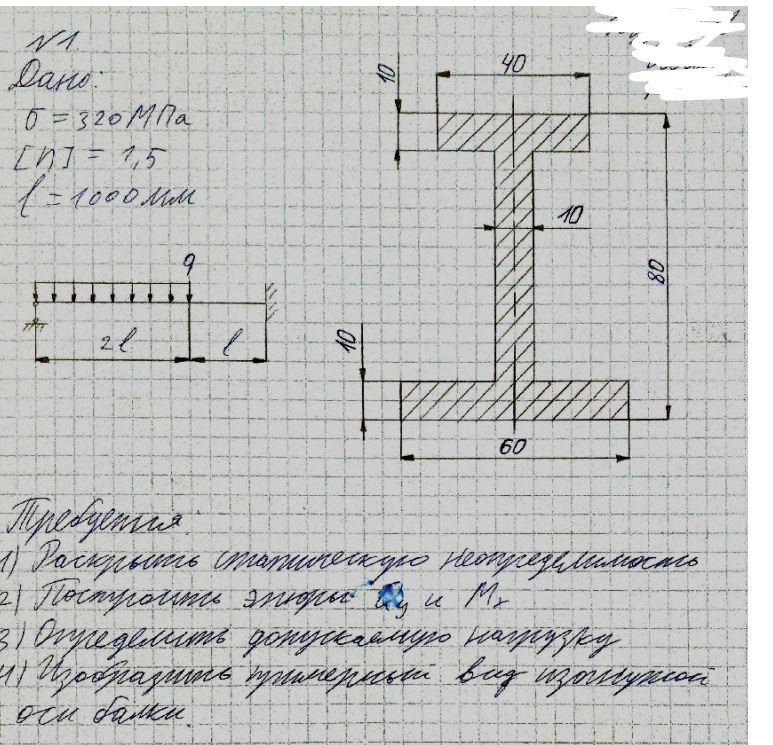 N1
Дано:
σ = 320 МПа
[n] = 1,5
l = 1000 мм
40
10
10
80
q
2l
l
10
60
Требуется:
1) Раскрыть статическую неопределимость
2) Построить эпюры Qy и Mx
3) Определить допускаемую нагрузку
4) Изобразить примерный вид изогнутой
оси балки.